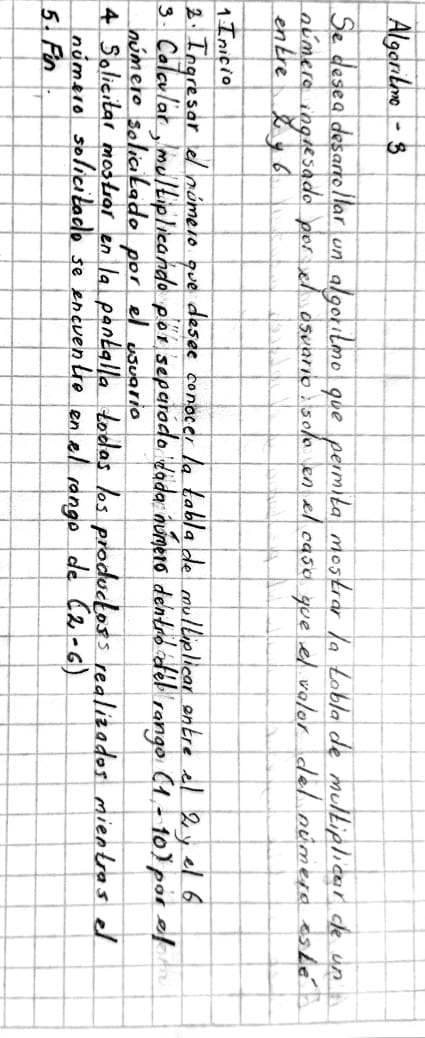 Algoritmo - 3
Se desea desarrollar un algoritmo que permita mostrar la tabla de multiplicar de un
número ingresado por el osuario: solo en el caso que el valor del número esté
entre 2 y 6
1. Inicio
2. Ingresar el número que desee conocer la tabla de multiplicar entre el 2 y el 6
3. Calcular, multiplicando por separado cada número dentro del rango (1-10) por el
número solicitado por el usuario
4 Solicitar mostrar en la pantalla todas los productos realizados mientras el
número solicitado se encuentre en el rango de (2-6)
5. Fin.